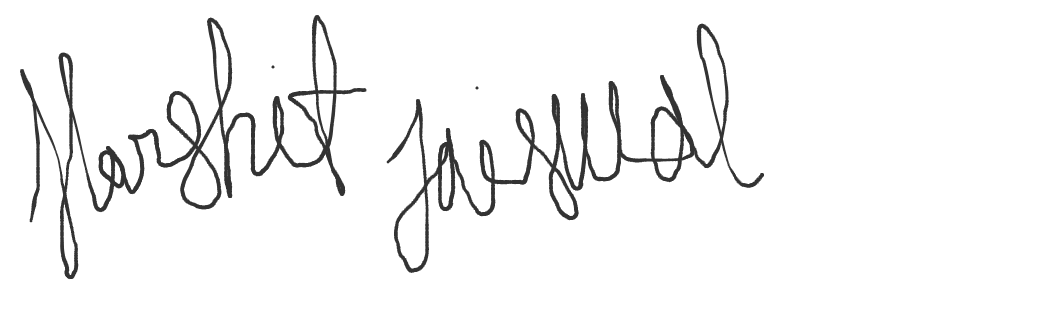 Harshit Jaiswal